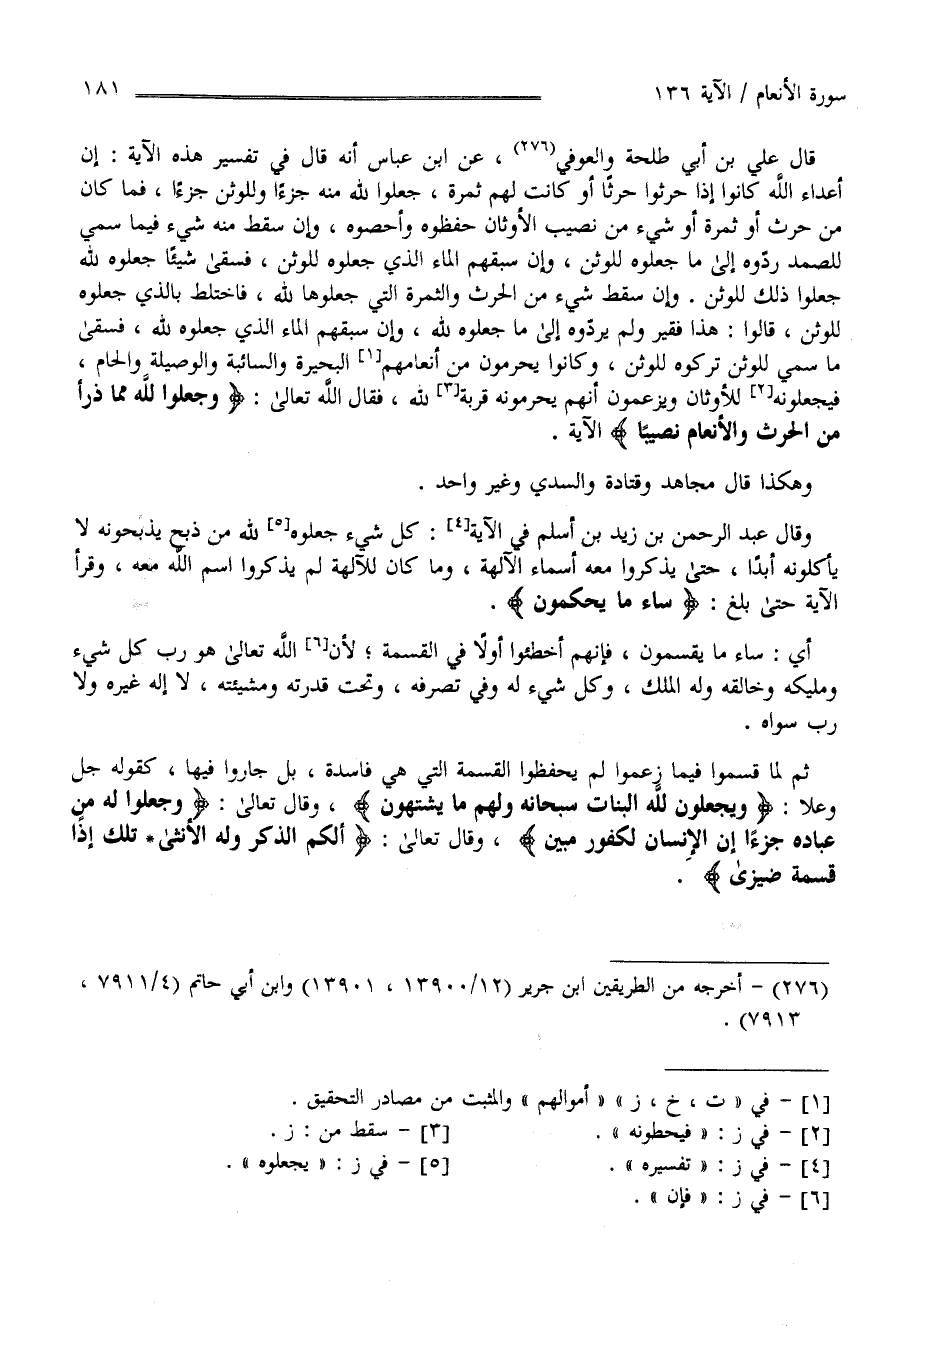 سورة الأنعام / الآية ١٣٦ ١٨١
قال علي بن أبي طلحة والعوفي(٢٧٦) ، عن ابن عباس أنه قال في تفسير هذه الآية : إن
أعداء اللَّه كانوا إذا حرثوا حرثًا أو كانت لهم ثمرة ، جعلوا لله منه جزءًا وللوثن جزءًا ، فما كان
من حرث أو ثمرة أو شيء من نصيب الأوثان حفظوه وأحصوه ، وإن سقط منه شيء فيما سمي
للصمد ردّوه إلىٰ ما جعلوه للوثن ، وإن سبقهم الماء الذي جعلوه للوثن ، فسقىٰ شيئًا جعلوه لله
جعلوا ذلك للوثن . وإن سقط شيء من الحرث والثمرة التي جعلوها لله ، فاختلط بالذي جعلوه
للوثن ، قالوا : هذا فقير ولم يردّوه إلىٰ ما جعلوه لله ، وإن سبقهم الماء الذي جعلوه لله ، فسقىٰ
ما سمي للوثن تركوه للوثن ، وكانوا يحرمون من أنعامهم[١] البحيرة والسائبة والوصيلة والحام ،
فيجعلونه[٢] للأوثان ويزعمون أنهم يحرمونه قربة[٣] لله ، فقال اللَّه تعالىٰ : ﴿ وجعلوا للَّه مما ذرأ
من الحرث والأنعام نصيبًا ﴾ الآية .
وهكذا قال مجاهد وقتادة والسدي وغير واحد .
وقال عبد الرحمن بن زيد بن أسلم في الآية[٤] : كل شيء جعلوه[٥] لله من ذبح يذبحونه لا
يأكلونه أبدًا ، حتىٰ يذكروا معه أسماء الآلهة ، وما كان للآلهة لم يذكروا اسم اللَّه معه ، وقرأ
الآية حتىٰ بلغ : ﴿ ساء ما يحكمون ﴾ .
أي : ساء ما يقسمون ، فإنهم أخطئوا أولًا في القسمة ؛ لأن[٦] اللَّه تعالىٰ هو رب كل شيء
ومليكه وخالقه وله الملك ، وكل شيء له وفي تصرفه ، وتحت قدرته ومشيئته ، لا إله غيره ولا
رب سواه .
ثم لما قسموا فيما زعموا لم يحفظوا القسمة التي هي فاسدة ، بل جاروا فيها ، كقوله جل
وعلا : ﴿ ويجعلون للَّه البنات سبحانه ولهم ما يشتهون ﴾ ، وقال تعالىٰ : ﴿ وجعلوا له من
عباده جزءًا إن الإنسان لكفور مبين ﴾ ، وقال تعالىٰ : ﴿ ألكم الذكر وله الأنثىٰ * تلك إذًا
قسمة ضيزىٰ ﴾ .
(٢٧٦) - أخرجه من الطريقين ابن جرير (١٣٩٠٠/١٢ ، ١٣٩٠١) وابن أبي حاتم (٧٩١١/٤ ،
٧٩١٣) .
[١] - في « ت ، خ ، ز » « أموالهم » والمثبت من مصادر التحقيق .
[٢] - في ز : « فيحطونه » . [٣] - سقط من : ز .
[٤] - في ز : « تفسيره » . [٥] - في ز : « يجعلوه » .
[٦] - في ز : « فإن » .